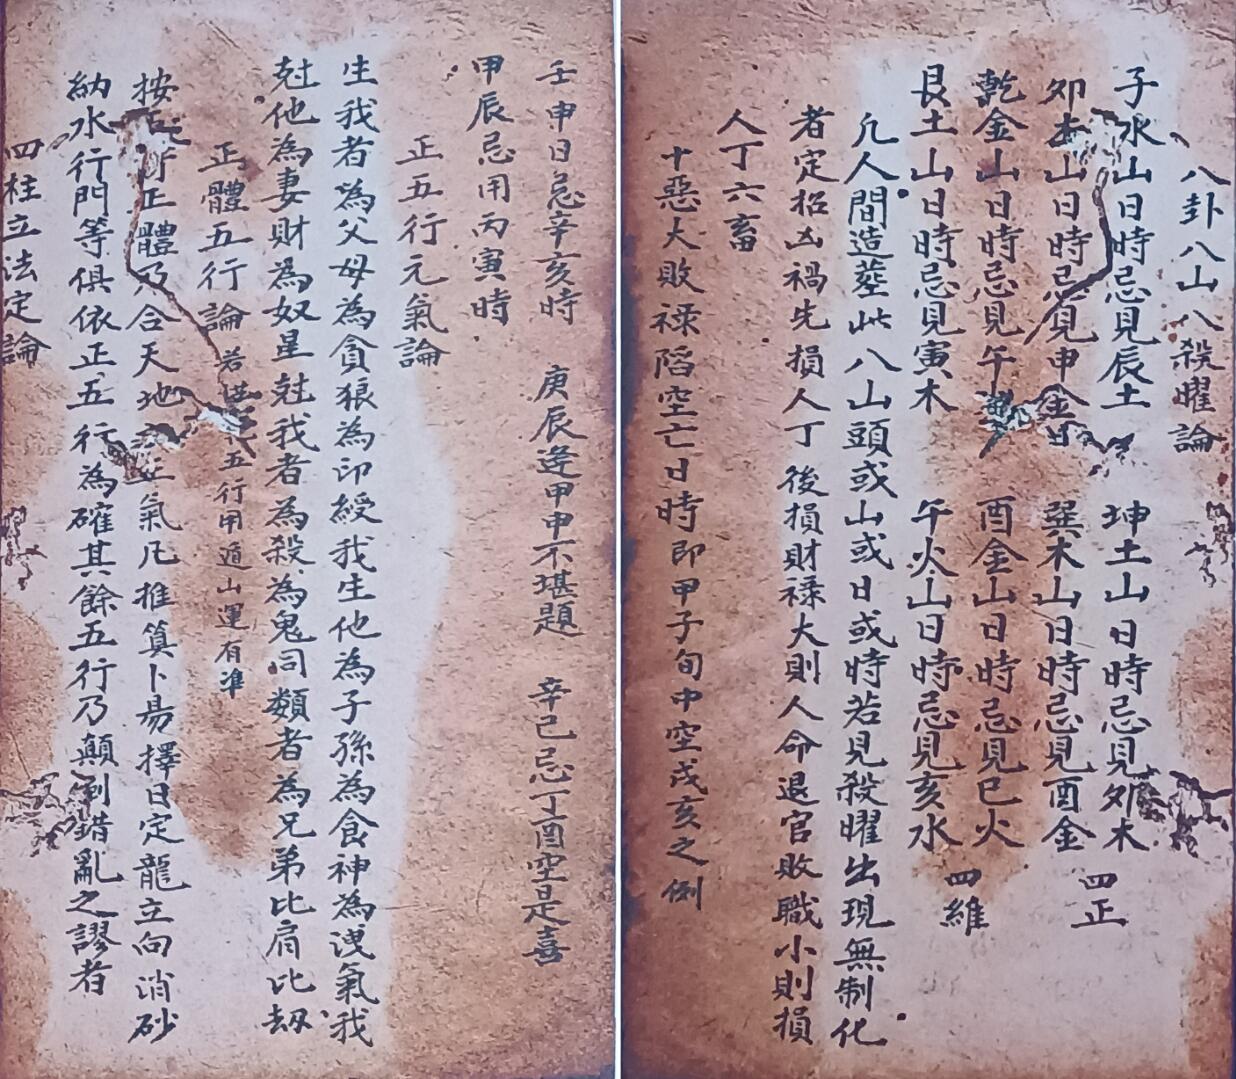 八卦八山八殺曜論
子水山日時忌見辰土 坤土山日時忌見夘木 四正
夘木山日時忌見申金 巽木山日時忌見酉金
乾金山日時忌見午 酉金山日時忌見巳火 四維
艮土山日時忌見寅木 午火山日時忌見亥水
凡人間造塟此八山頭或山或日或時若見殺曜出現無制化
者定招凶禍先損人丁後損財祿大則人命退官敗職小則損
人丁六畜
十惡大敗祿陷空亡日時即甲子旬中空戌亥之例
壬申日忌辛亥時 庚辰逢甲申不堪題 辛巳忌丁酉空是喜
甲辰忌用丙寅時
正五行元氣論
生我者為父母為貪狼為印綬我生他為子孫為食神為洩氣我
尅他為妻財為奴星尅我者為殺為鬼同類者為兄弟比肩比刼
正體五行論 若 五行用遁山運有準
按 正體乃合天地 正氣凡推算卜易擇日定龍立向消砂
納水行門等俱依正五行為確其餘五行乃顛倒錯亂之謬者
四柱立法定論